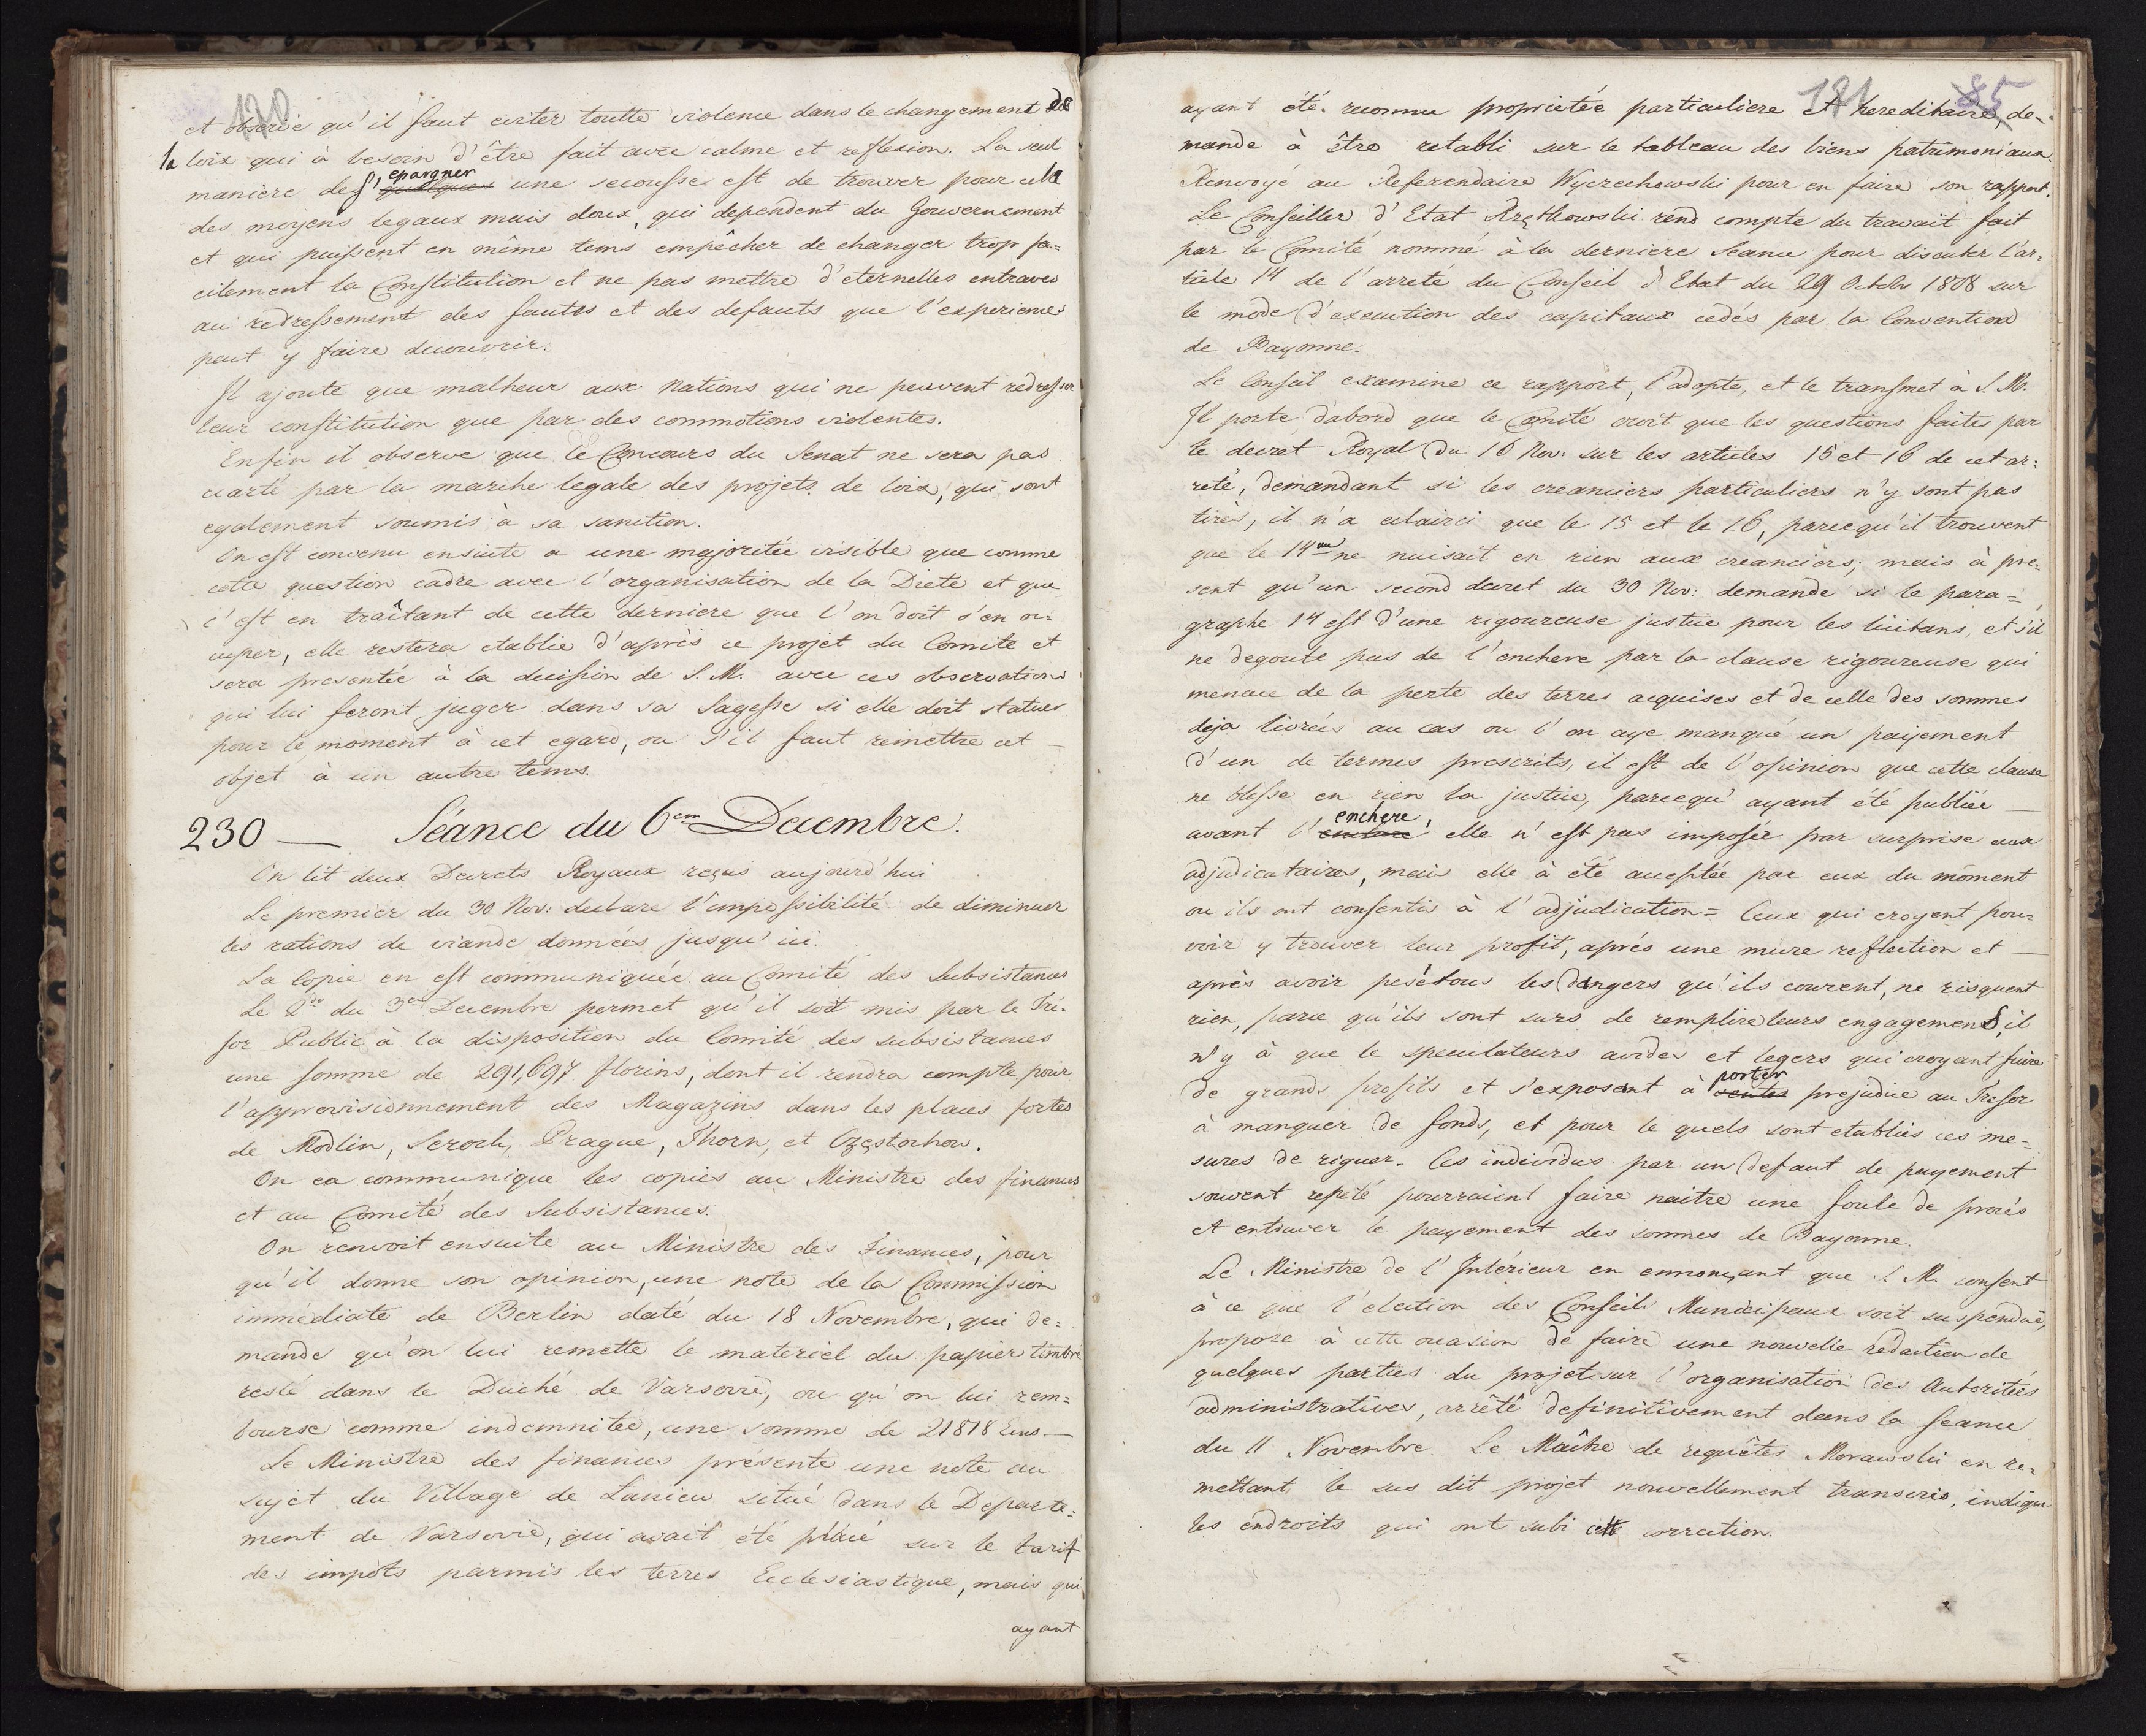 120
et observé qu'il faut eviter toutte violence dans le changement de
la loix qui à besoin d'être fait avec calme et reflexion. La seul
manière de s'epargner une secousse est de trouver pour cela
des moyens legaux mais doux, qui dependent du Gouvernement
et qui puissent en même tems empêcher de changer trop fa=
cilement la Constitution et ne pas mettre d'eternelles entraves
au redressement des fautes et des defauts que l'experience
peut y faire decouvrir.
Il ajoute que malheur aux Nations qui ne peuvent redresser
leur constitution que par des commotions violentes.
Enfin il observe que le Concours du Senat ne sera pas
ecarté par la marche legale des projets de loix, qui sont
egalement soumis à sa sanction.
On est convenu ensuite a une majoritée visible que comme
cette question cadre avec l'organisation de la Diete et que
c'est en traîtant de cette derniere que l'on doit s'en oc=
cuper, elle restera etablie d'après ce projet du Comite et
sera presentée à la decision de S. M. avec ces observations
qui lui feront juger dans sa Sagesse si elle doit statuer
pour le moment à cet egard, ou s'il faut remettre cet —
objet à un autre tems.
230 — Séance du 6em Decembre.
On lit deux Decrets Royaux reçus aujourd'hui
Le premier du 30 Nov: declare l'impossibilité de diminuer
les rations de viande données jusqu'ici.
La Copie en est communiquée au Comité des Subsistances
Le 2de du 3em Decembre permet qu'il soit mis par le Tré-
sor Public à la disposition du Comité des subsistances
une somme de 291,697 florins, dont il rendra compte pour
l'approvisionnement des Magazins dans les places fortes
de Modlin, Serock, Prague, Thorn, et Częstochow.
On ca communique les copies au Ministre des finances
et au Comité des Subsistances.
On renvoit ensuite au Ministre des Finances, pour
qu'il donne son opinion, une note de la Commission
immédiate de Berlin daté du 18 Novembre, qui de=
mande qu'on lui remette le materiel du papier timbré
resté dans le Duché de Varsovie, ou qu'on lui rem=
bourse comme indemnitée, une somme de 21818 Ecus —
Le Ministre des finances présente une note au
sujet du Village de Laniew situé dans le Departe=
ment de Varsovie, qui avait été placé sur le tarif
des impôts parmis les terres Ecclesiastique, mais qui
ayant
121 85
ayant été reconnu proprietée particuliere et hereditaire, de-
mande à être retabli sur le tableau des biens patrimoniaux.
Renvoyé au Referendaire Wyczechowski pour en faire son rapport.
Le Conseiller d'Etat Rzętkowski rend compte du travail fait
par le Comité nommé à la derniere Seance pour discuter l'ar=
ticle 14 de l'arrete du Conseil d'Etat du 29 Octobr 1808 sur
le mode d'execution des capitaux cedés par la Convention
de Bayonne.
Le Conseil examine ce rapport, l'adopte, et le transmet à S. M.
Il porte d'abord que le Comité croit que les questions faites par
le decret Royal du 16 Nov. sur les articles 15 et 16 de cet ar=
reté, demandant si les creanciers particuliers n'y sont pas
tirés, il n'a eclairci que le 15 et le 16, parcequ'il trouvent
que le 14em ne nuisait en rien aux creanciers; mais à pre=
sent qu'un second decret du 30 Nov: demande si le para=
graphe 14 est d'une rigoureuse justice pour les licitans, et s'il
ne degoute pas de l'enchere par la clause rigoureuse qui
menace de la perte des terres acquises et de celle des sommes
deja livrées au cas ou l'on aye manqué un payement
d'un de termes prescrits, il est de l'opinion que cette clause
ne blesse en rien la justice, parcequ'ayant été publiée —
avant l'enchere, elle n'est pas imposée par surprise aux
adjudicataires, mais elle à été acceptée par eux du môment
ou ils ont consentis à l'adjudication = Ceux qui croyent pou=
voir y trouver leur profit, aprés une mure reflection et —
après avoir pesé tous les dangers qu'ils courent, ne risquent
rien, parce qu'ils sont surs de remplire leurs engagemens, il
n'y à que le speculateurs avides et legers qui croyant faire
de grands profits et s'exposent à porter prejudice au Tresor
à manquer de fonds, et pour le quels sont etablies ces me=
sures de riguer. Ces individus par un defaut de payement
souvent repeté pourraient faire naitre une foule de procés
et entraver le payement des sommes de Bayonne.
Le Ministre de l'Intérieur en ennonçant que S. M. consent
à ce que l'election des Conseils Municipaux soit suspendue,
propose à cette occasion de faire une nouvelle rédaction de
quelques parties du projet sur l'organisation des Autoritées
administratives, arrêté definitivement dans la seance
du 11 Novembre. Le Maître de requêtes Morawski en re=
mettant le sus dit projet nouvellement transcris, indique
les endroits qui ont subi cette correction.